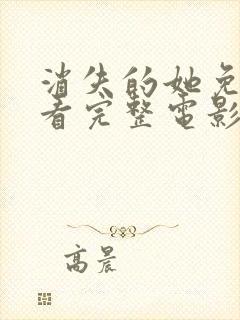 消失的她免
看完整电影
高晨